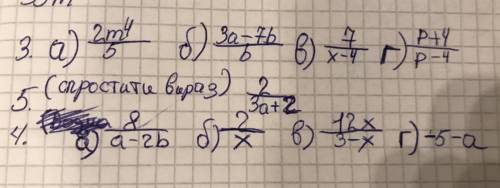 3. а) 2m⁴/5 б) 3a-7b/b в) 7/x-4 г) p+4/p-4
5. (спростити вираз) 2/3a+2
4. а) 8/a-2b б) 2/x в) 12x/3-x г) -5-a